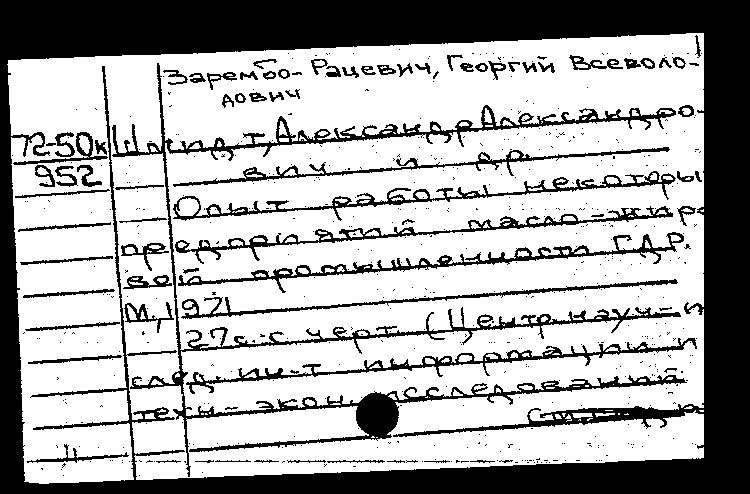 Зарембо-Рацевич, Георгий Всеволо-
дович
72-50к
952
Шмидт, Александр Александро-
вич и др.
Опыт работы некоторы
предприятий масло-жиро
вой промышленности ГДР.
М., 1971
27 с. с черт. (Центр. науч.-и
след. ин-т информации и
техн.-экон. исследований